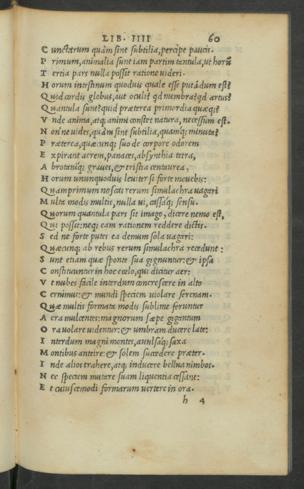 LIB. IIII 60
Cunctarum quàm sint subtilia, percipe paucis.
Primum, animalia sunt iam partim tantula, ut horum
Tertia pars nulla possit ratione uideri.
Horum intestinum quoduis quale esse putandum est?
Quid cordis globus, aut oculi? qd membra? qd artus?
Quantula sunt? quid præterea primordia quæque,
Vnde anima, atque animi constet natura, necessum est.
Nonne uides, quàm sint subtilia, quamque minuta?
Præterea, quæcunque suo de corpore odorem
Expirant acrem, panaces, absynthia tetra,
Abrotanique graues, et tristia centaurea,
Horum unumquoduis leuiter si forte
Quamprimum noscas rerum simulachra uagari
Multa modis multis, nulla ui, cassaque sensu.
Quorum quantula pars sit imago, dicere nemo est,
Qui possit: neque eam rationem reddere dictis.
Sed ne forte putes ea demum sola uagari:
Quæcunque ab rebus rerum simulachra recedunt:
Sunt etiam quæ sponte sua gignuntur: et ipsa
Constituuntur in hoc cœlo, qui dicitur aer:
Vt nubes facile interdum concrescere in alto
Cernimus: et mundi speciem uiolare serenam.
Quæ multis formata modis sublime feruntur
Aera mulcentes: magnorum sæpe gigantum
Ora uolare uidentur: et umbram ducere late:
Interdum magni montes, auulsaque saxa
Montibus anteire: et solem succedere præter.
Inde alios trahere, atque inducere bellua nimbos.
Nec speciem mutare suam liquentia cessant:
Et cuiuscemodi formarum uertere in ora.
h 4